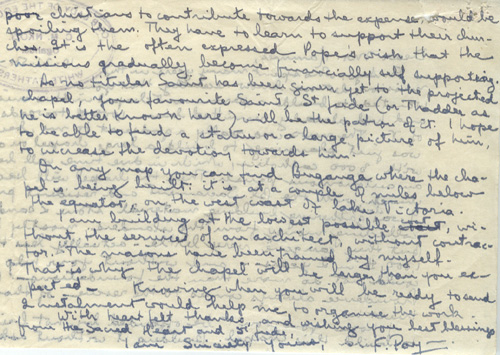 poor christians to contribute towards the expenses, would be
spoiling them. They have to learn to support their chur-
ches. It is the often expressed Pope's wish that the
missions gradually become financially self supporting
As no titular Saint has been given yet to the projected
chapel, your favourite Saint, St Jude (or Thadder as
he is better known here) will be the patron of it. I hope
to be able to find a statue or a large picture of him,
to increase the devotion towards him.
On any map you can find Buganga where the cha-
pel is being built: it is at a couple of miles below
the equator, on the west coast of lake Victoria.
I am building at the lowest possible cost, wi-
thout the services of an architect, without contrac-
tor. The masons have been trained by myself.
That is why the chapel will be larger than you ex-
pected. Knowing when you will be ready to send
a instalment would help me to organise the work
With heart felt thanks, and wishing you best blessings
from the Sacred Heart and St Jude,
I am Sincerely Yours,